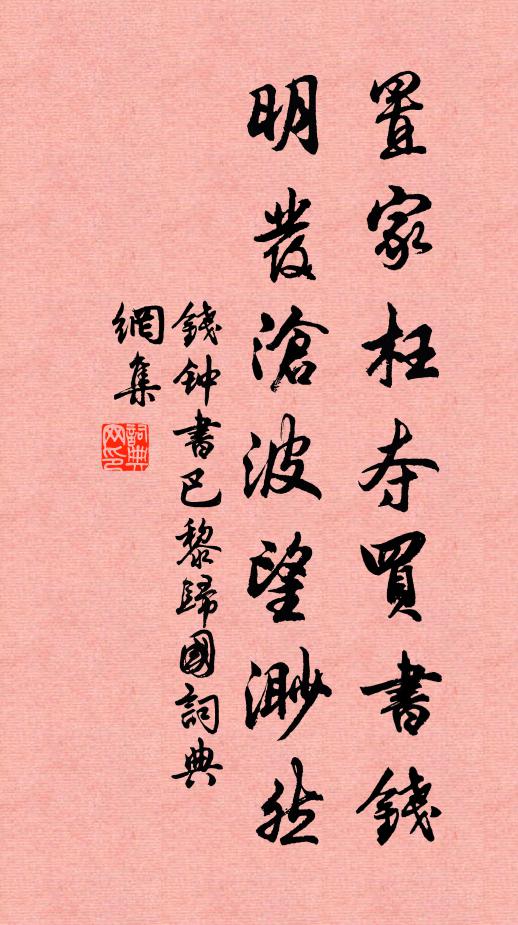 置家枉夺買書錢
明發滄波望渺然
錢钟書巴黎歸國詞典
網集
詞典
网印